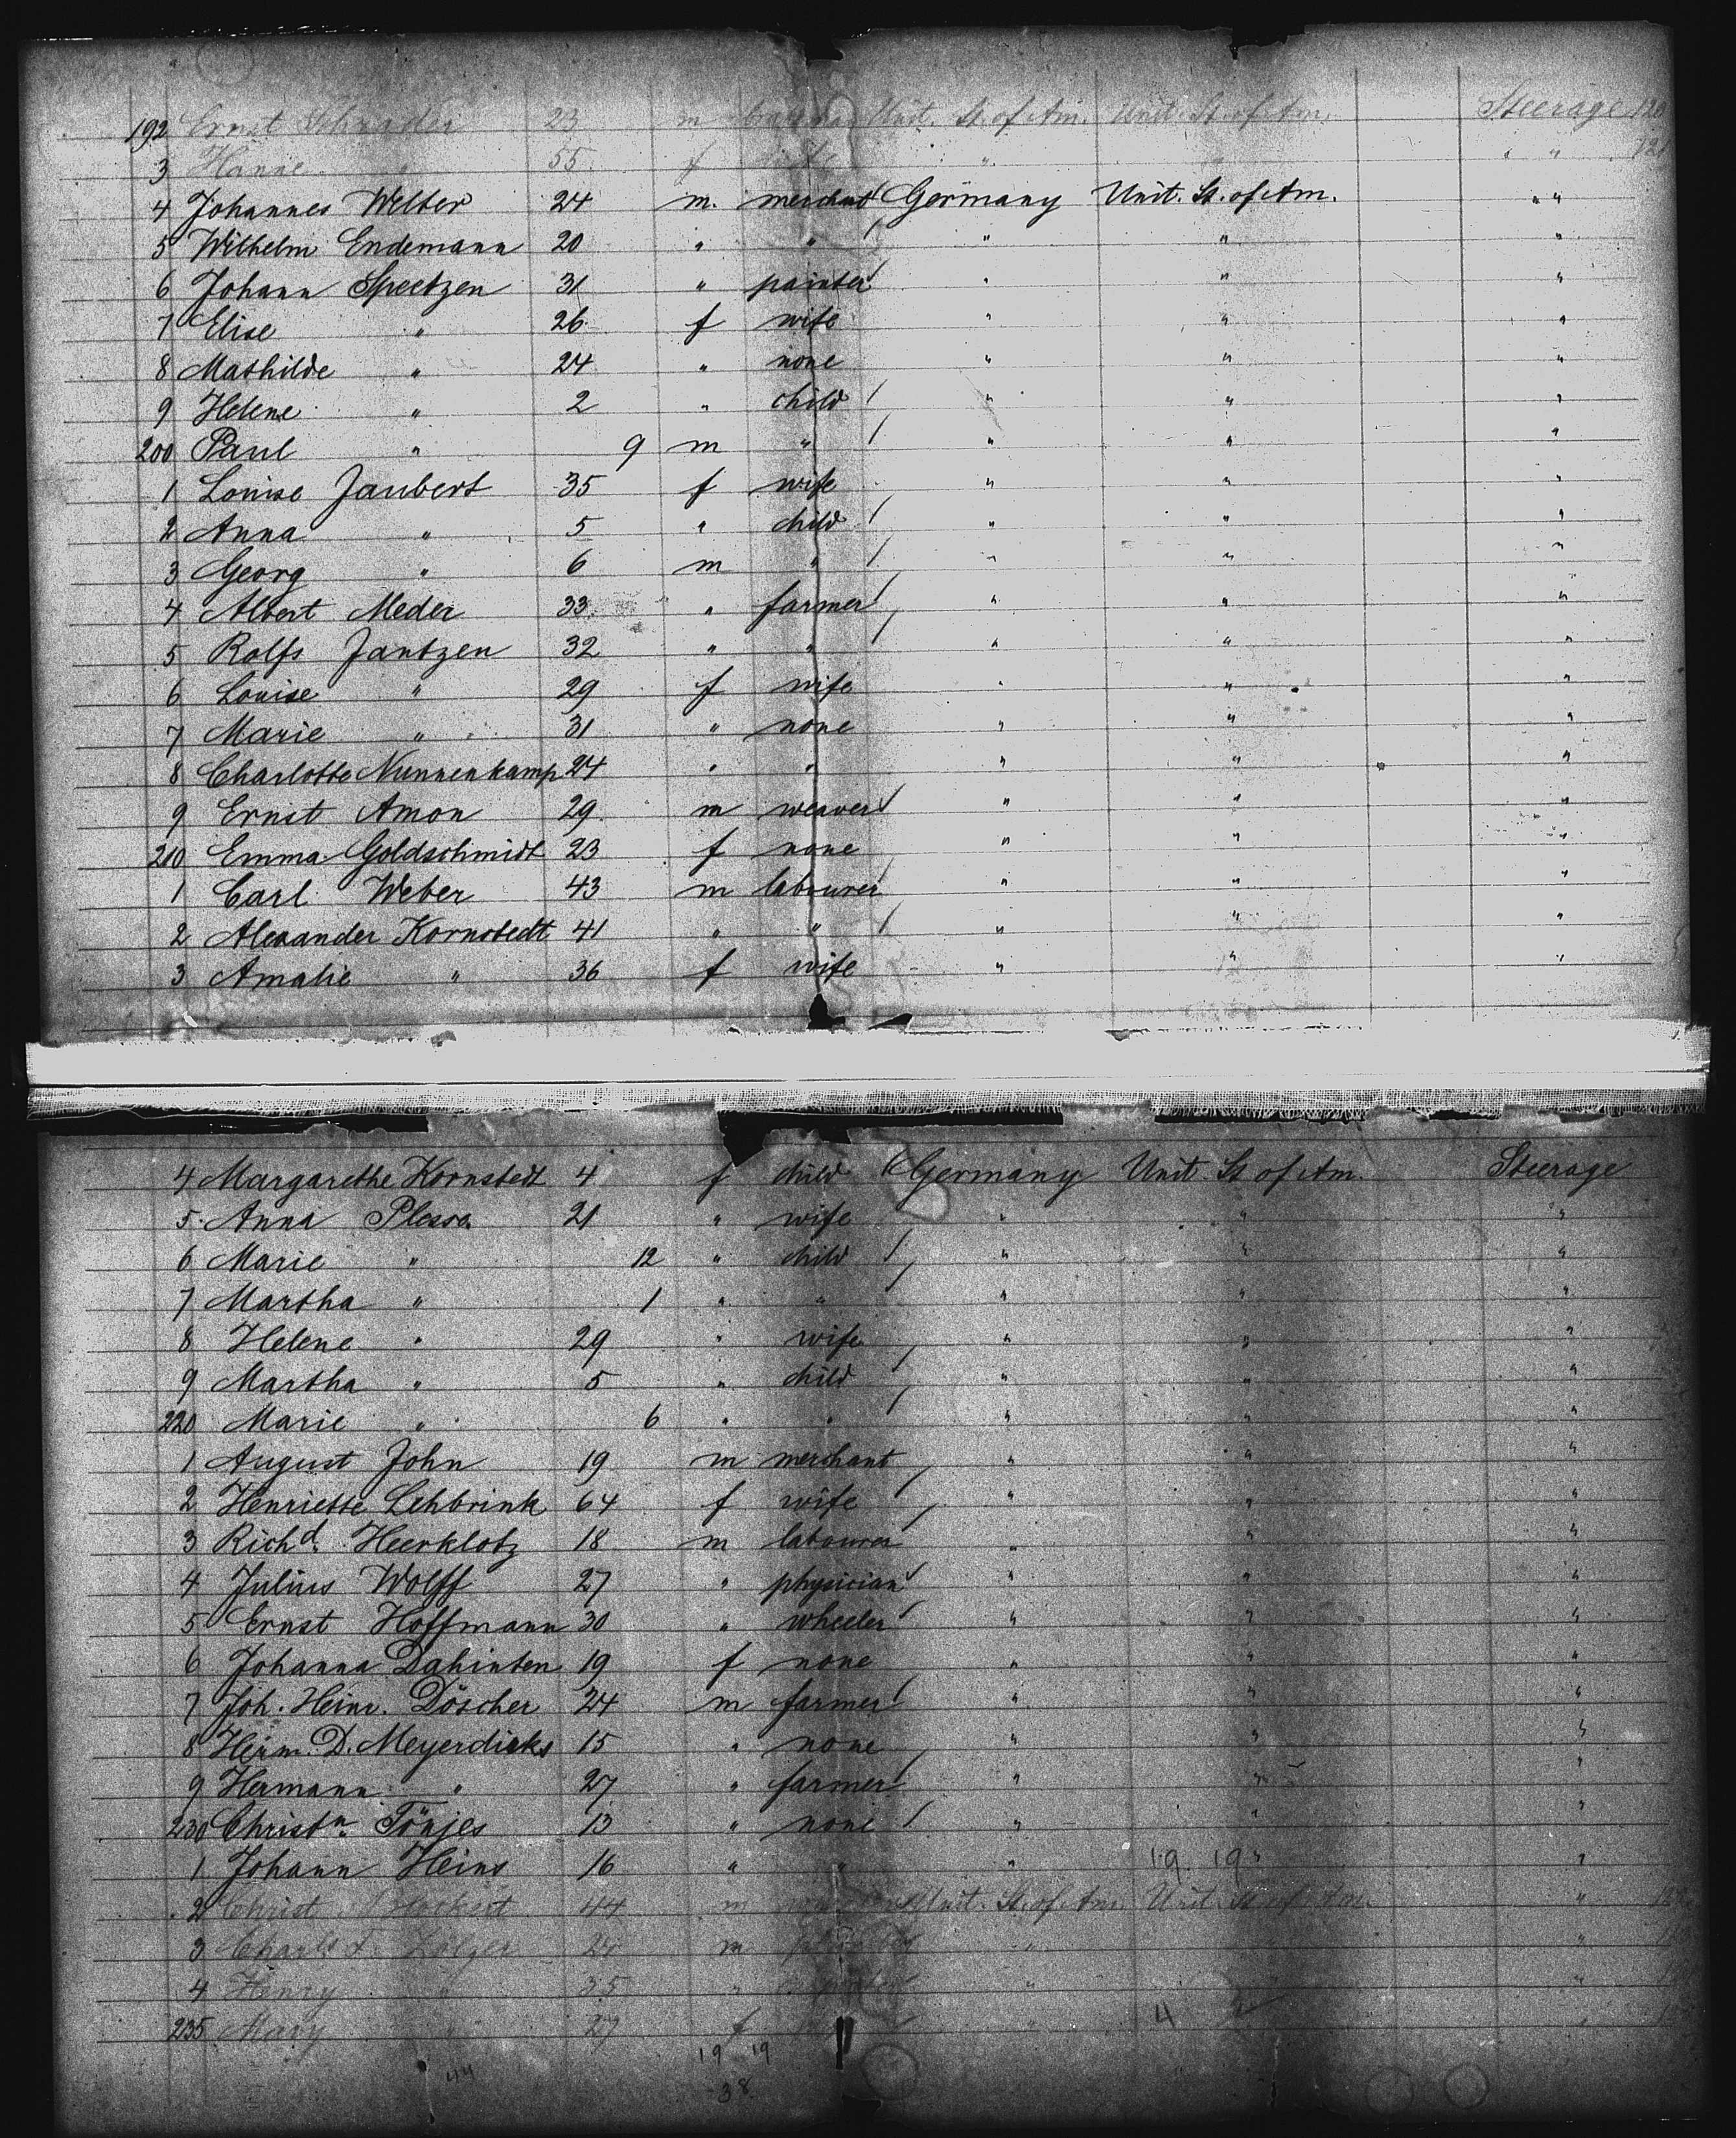 192 Ernst 23 m Unit. St. of Am. Unit. St. of Am. Steerage 120
3 Hanne " 55 f wife " " " 121
4 Johannes Welter 24 m. merchant Germany Unit. St. of Am. "
5 Wilhelm Endemann 20 " " " " "
6 Johann Speetzen 31 " painter " " "
7 Elise " 26 f wife " " "
8 Mathilde " 24 " none " " "
9 Helene " 2 " child " " "
200 Paul " 9 m " " " "
1 Louise Jaubert 35 f wife " " "
2 Anna " 5 " child " " "
3 Georg " 6 m " " " "
4 Albert Meder 33 " farmer " " "
5 Rolfs Jantzen 32 " " " " "
6 Louise " 29 f wife " " "
7 Marie " 31 " none " " "
8 Charlotte Nunnenkamp 24 " " " " "
9 Ernst Amon 29 m weaver " " "
210 Emma Goldschmidt 23 f none " " "
1 Carl Weber 43 m labourer " " "
2 Alexander Kornstedt 41 " " " " "
3 Amalie " 36 f wife " " "
4 Margarethe Kornstedt 4 f child Germany Unit. St of Am. Steerage
5 Anna Plesse 21 " wife " " "
6 Marie " 12 " child " " "
7 Martha " 1 " " " " "
8 Helene " 29 " wife " " "
9 Martha " 5 " child " " "
220 Marie " 6 " " " " "
1 August John 19 m merchant " " "
2 Henriette Lehbrink 64 f wife " " "
3 Richd. Heerklotz 18 m labourer " " "
4 Julius Wolff 27 " physician " " "
5 Ernst Hoffmann 30 " wheeler " " "
6 Johanna Dahinten 19 f none " " "
7 Joh. Heinr. Döscher 24 m farmer " " "
8 Herm. D. Meyerdierks 15 " none " " "
9 Hermann " 27 " farmer " " "
230 Christn. Tönjes 13 " none " " "
1 Johann Heins 16 " " " 19 19 " "
2 Christ 44 m Unit. St. of Am. Unit. St. of Am. "
3 Charls F. Zolzer m " " "
4 Henry " 35 " " " "
235 Mary 27 f " 4 "
19 19
44
38